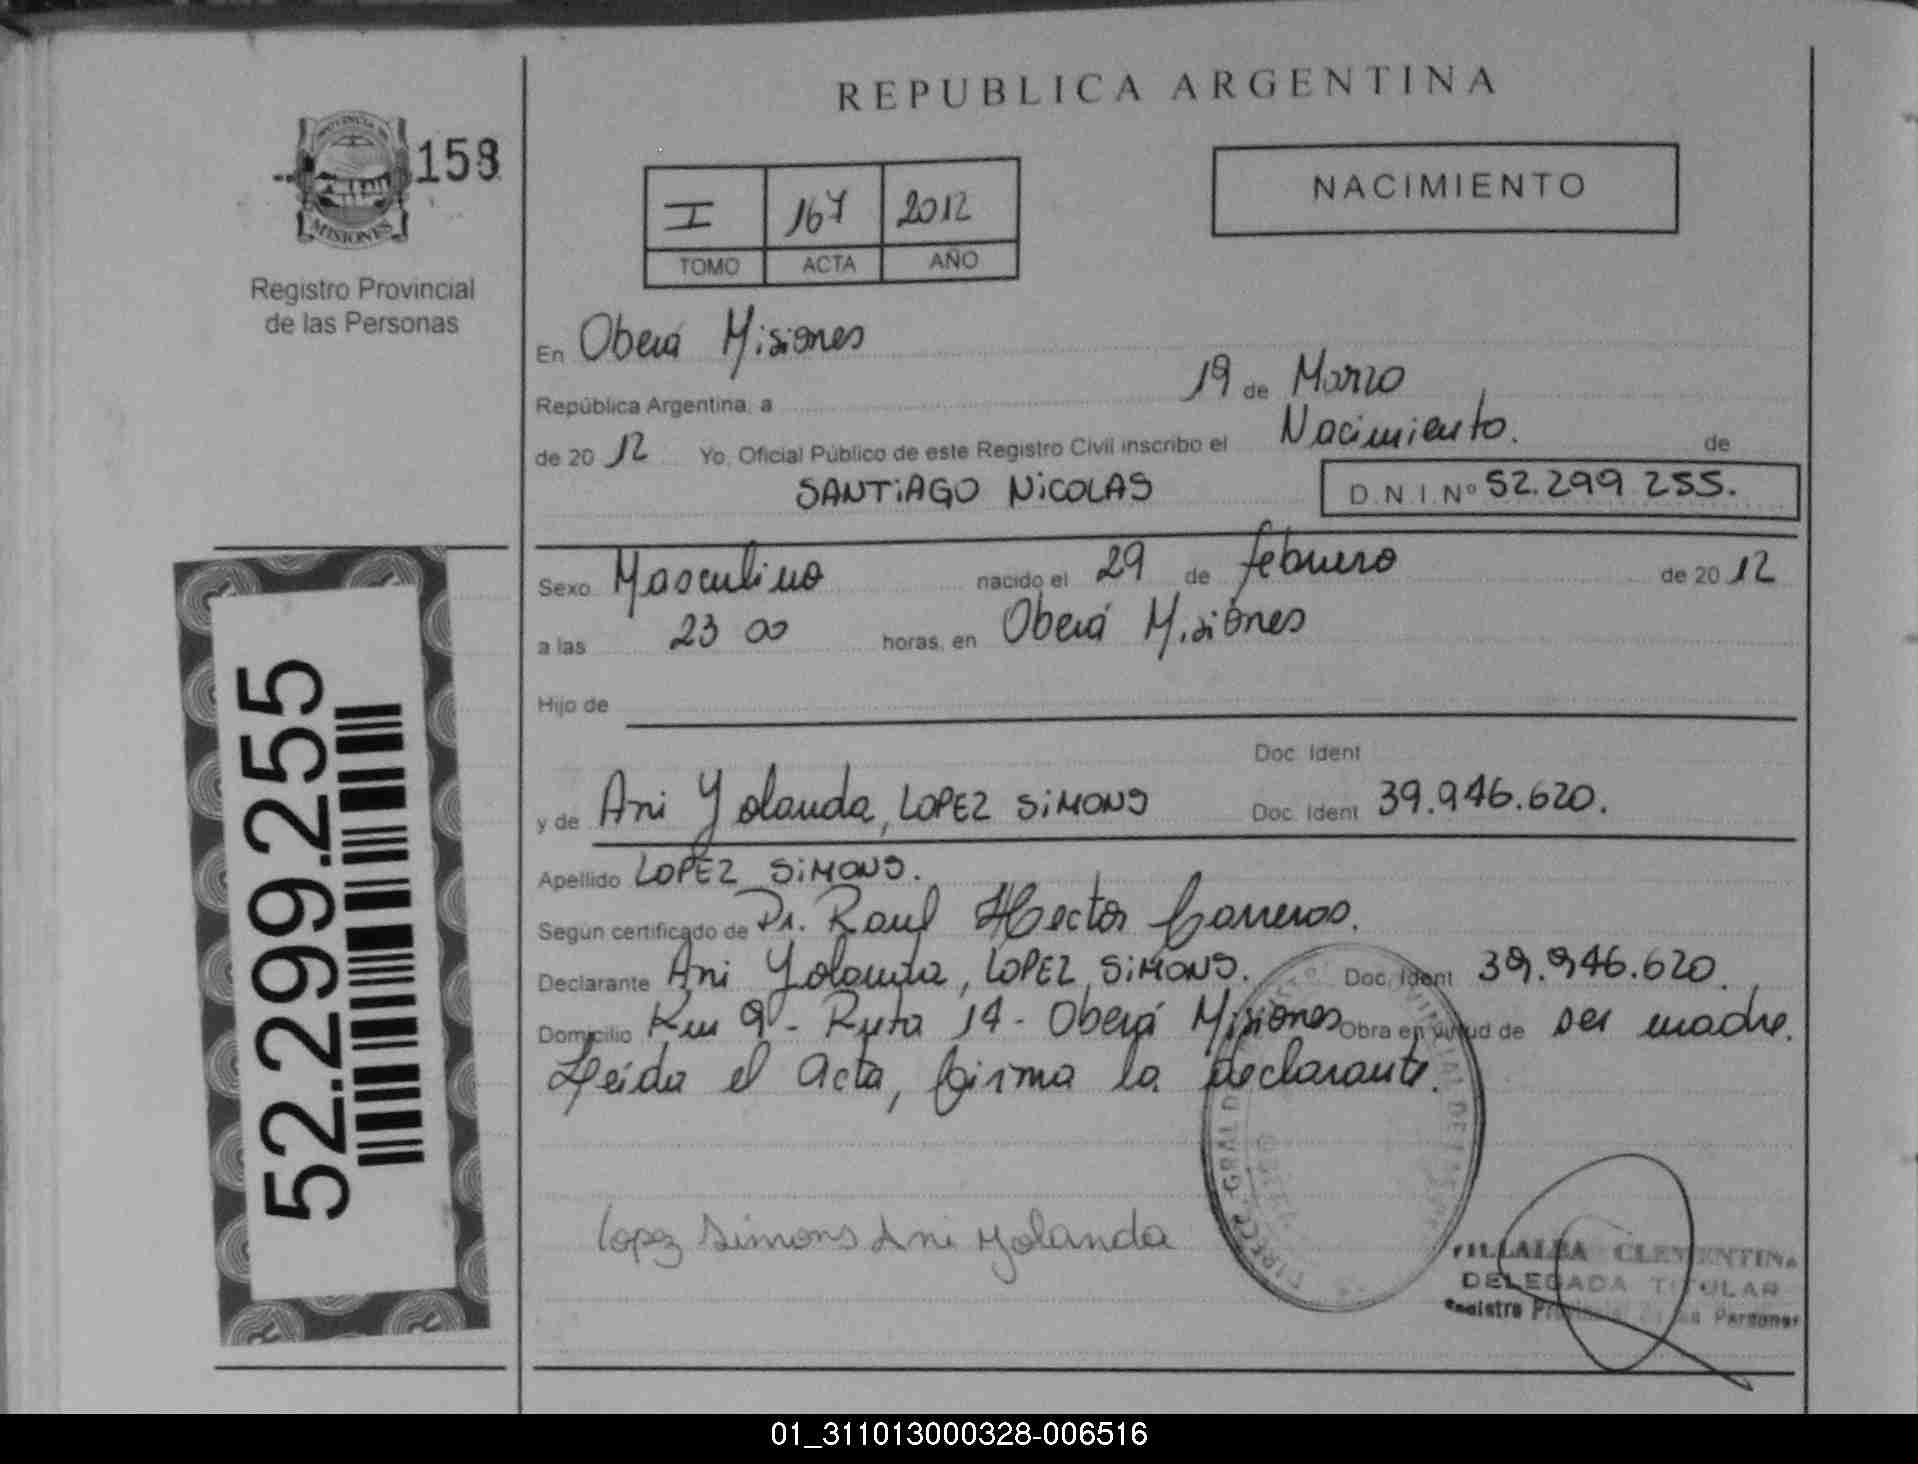 REPUBLICA ARGENTINA
158
MISIONES
Registro Provincial
de las Personas
I 167 2012
TOMO ACTA AÑO
NACIMIENTO
En Oberá Misiones
República Argentina, a 19 de Marzo
de 2012 Yo, Oficial Público de este Registro Civil inscribo el Nacimiento. de
SANTIAGO NICOLAS D.N.I. Nº 52.299.255.
Sexo Masculino nacido el 29 de febrero de 2012
a las 23 00 horas, en Oberá Misiones
Hijo de
Doc. Ident
y de Ani Yolanda, LOPEZ SIMONS Doc. Ident 39.946.620.
Apellido LOPEZ SIMONS.
Según certificado de Dr. Raul Hector Carreros.
Declarante Ani Yolanda, LOPEZ SIMONS. Doc. Ident 39.946.620.
Domicilio Km 9 - Ruta 14 - Oberá Misiones Obra en virtud de ser madre.
Leida el acta, firma la declarante.
52.299.255
Lopez Simons Ani Yolanda
VILLALBA CLEMENTINA
DELEGADA TITULAR
Registro Provincial de las Personas
01_311013000328-006516